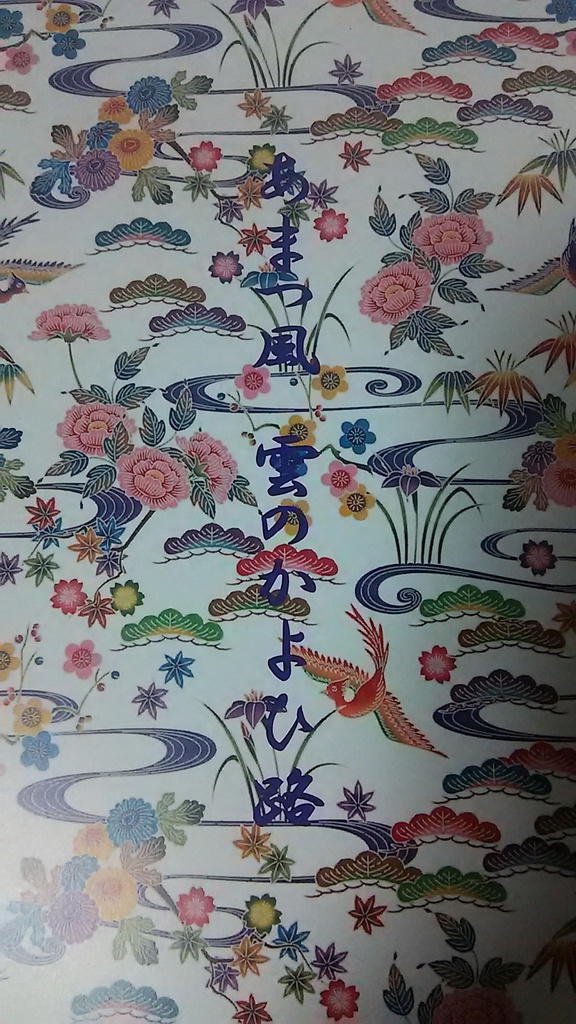 あまつ風 雲のかよひ路